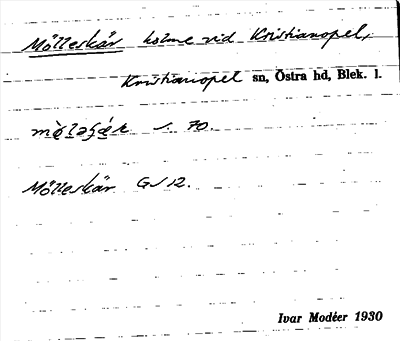 Mölleskär holme vid Kristianopel,
Kristianopel sn, Östra hd, Blek. l.
s. 70.
Mölleskär GS 12.
Ivar Modéer 1930